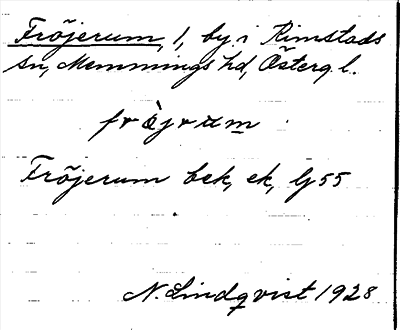 Fröjerum, 1, by i Rimstads
sn, Memmings hd, Österg. l.
frö̀jrum
Fröjerum bek, ek, Lj 55
N. Lindqvist 1928